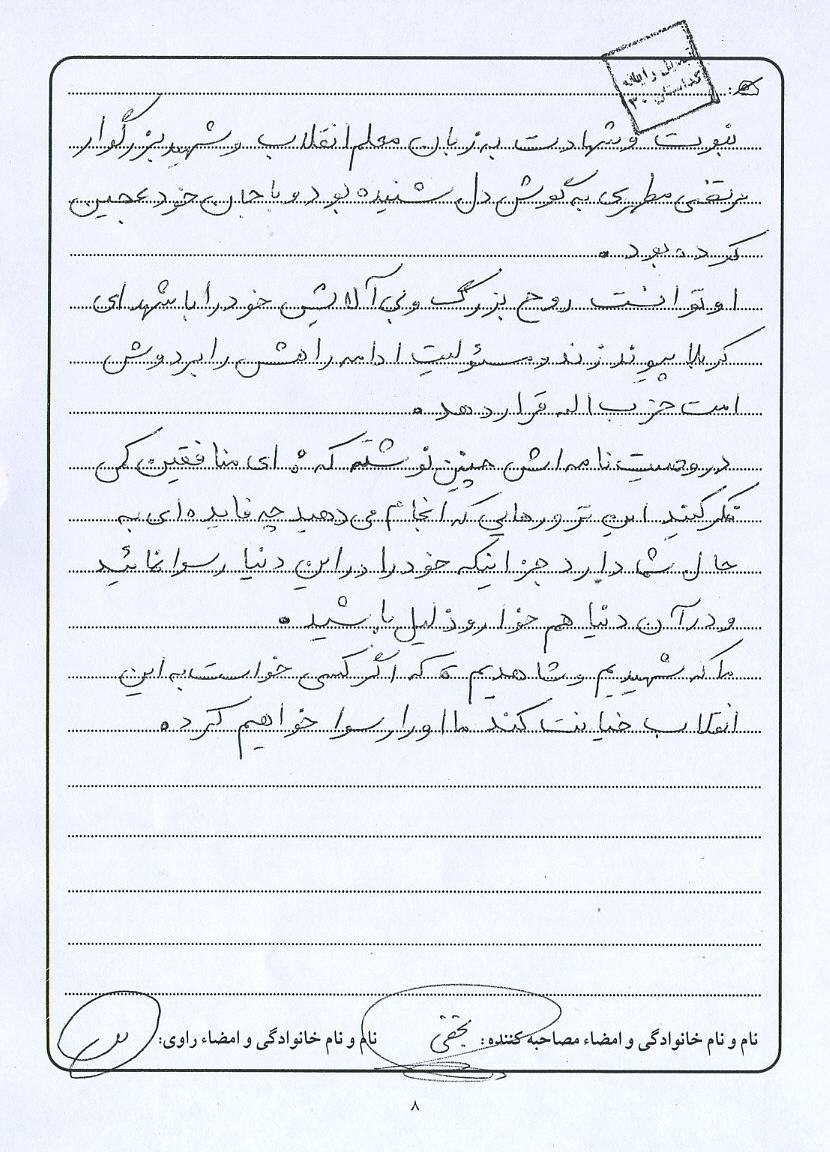 تبدیل رایانه
کد استان ۳۰
نبوت و شهادت به زبان معلم انقلاب و شهید بزرگوار
مرتضی مطهری به گوش دل شنیده بود و با جان خود عجین
کرده بود.
او توانست روح بزرگ و بی آلایش خود را با شهدای
کربلا پیوند زند و مسئولیت ادامه راهش را بر دوش
امت حزب اله قرار دهد.
در وصیت نامه اش چنین نوشته که: ای منافقین کمی
فکر کنید این ترورهایی که انجام می دهید چه فایده ای به
حال شما دارد جز اینکه خود را در این دنیا رسوا نمائید
و در آن دنیا هم خوار و ذلیل باشید.
ما که شهیدیم و شاهدیم که اگر کسی خواست به این
انقلاب خیانت کند ما او را رسوا خواهیم کرد.
نام و نام خانوادگی و امضاء مصاحبه کننده: نام و نام خانوادگی و امضاء راوی:
۸